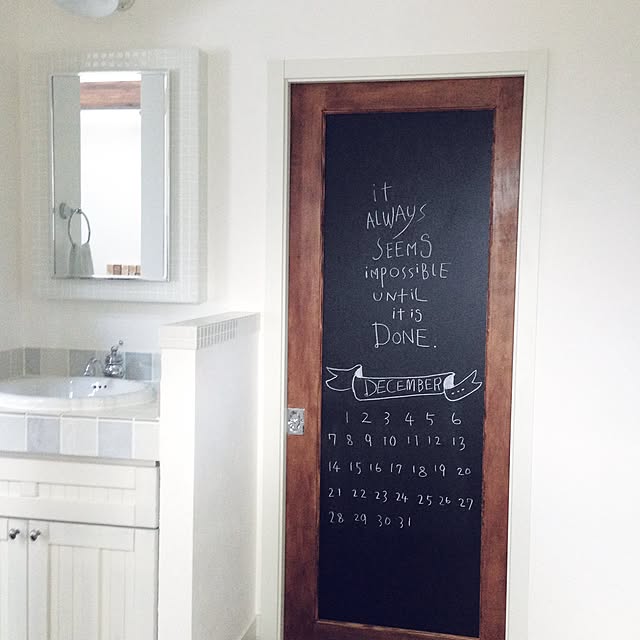 it
ALWAYS
SEEMS
impossible
UNTiL
it is
DONE.
DECEMBER...
1 2 3 4 5 6
7 8 9 10 11 12 13
14 15 16 17 18 19 20
21 22 23 24 25 26 27
28 29 30 31